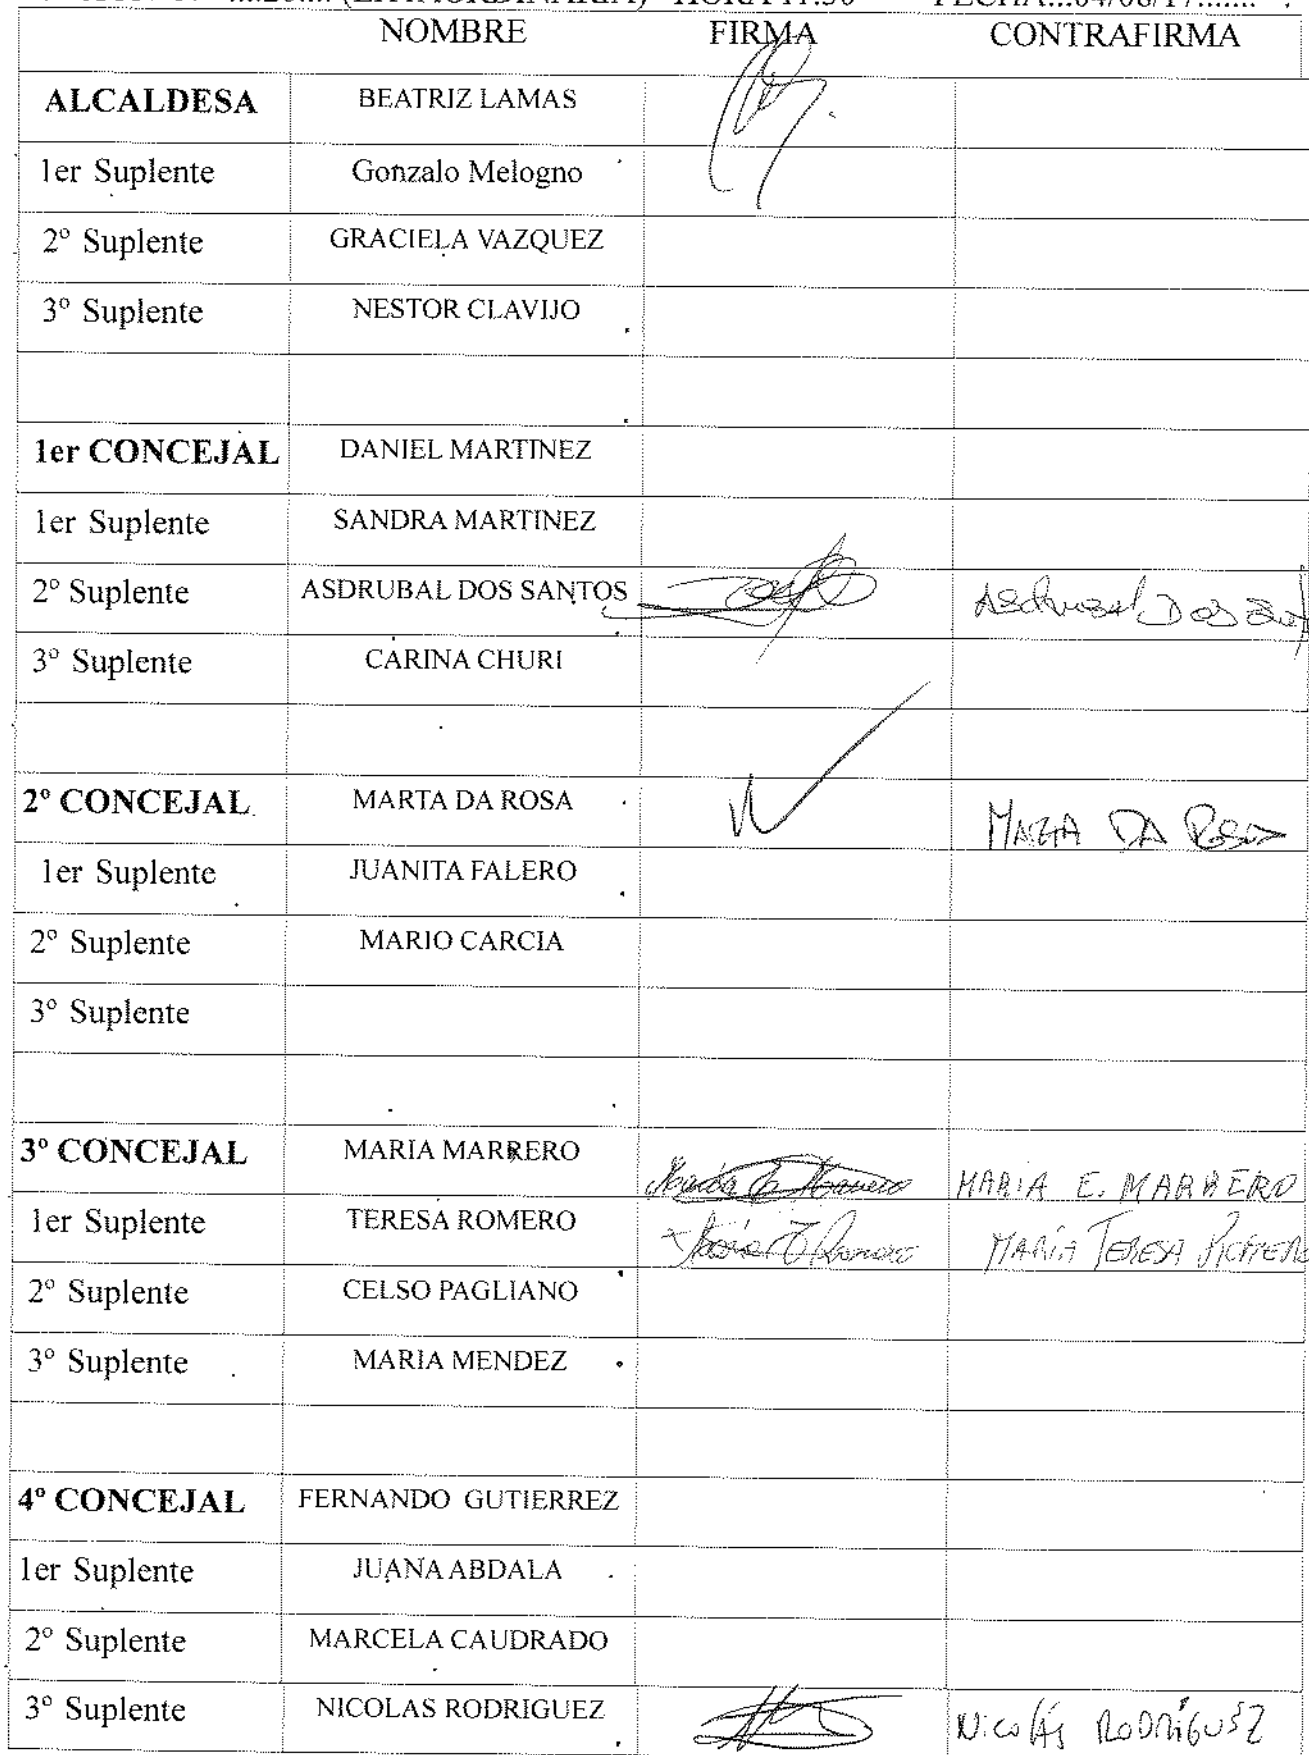 NOMBRE FIRMA CONTRAFIRMA
ALCALDESA BEATRIZ LAMAS
1er Suplente Gonzalo Melogno
2º Suplente GRACIELA VAZQUEZ
3º Suplente NESTOR CLAVIJO
1er CONCEJAL DANIEL MARTINEZ
1er Suplente SANDRA MARTINEZ
2º Suplente ASDRUBAL DOS SANTOS
3º Suplente CARINA CHURI
2º CONCEJAL MARTA DA ROSA DA
1er Suplente JUANITA FALERO
2º Suplente MARIO CARCIA
3º Suplente
3º CONCEJAL MARIA MARRERO MARIA E. MARRERO
1er Suplente TERESA ROMERO MARÍA TERESA
2º Suplente CELSO PAGLIANO
3º Suplente MARIA MENDEZ
4º CONCEJAL FERNANDO GUTIERREZ
1er Suplente JUANA ABDALA
2º Suplente MARCELA CAUDRADO
3º Suplente NICOLAS RODRIGUEZ Nicolás RODRÍGUEZ